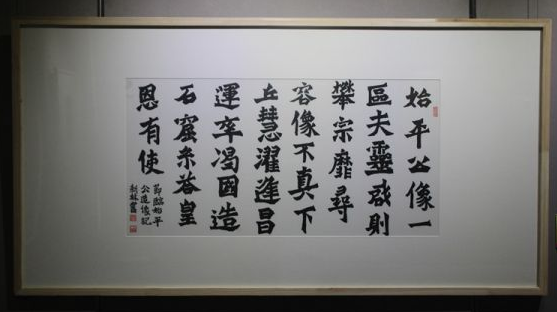 始平公像一
區夫靈啟則
攀宗靡尋
容像不真下
丘慧濯逢昌
運率渴因造
石窟糸荅皇
恩有使
節臨始平
公造像記